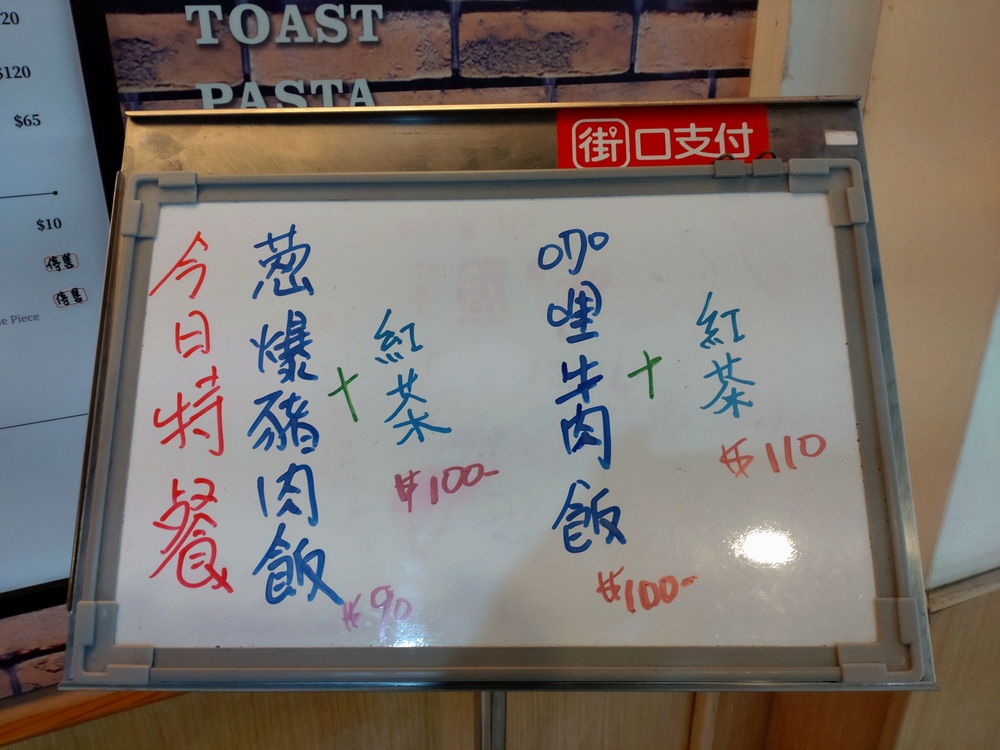 20
$120
$65
$10
停售
停售
e Piece
TOAST
PASTA
街口支付
今日特餐
葱爆豬肉飯
$90
+
紅茶
$100-
咖哩牛肉飯
$100-
+
紅茶
$110